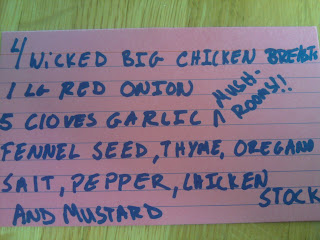 4 WICKED BIG CHICKEN BREASTS
1 LG RED ONION
5 CLOVES GARLIC ^ MUSH-
ROOMS!!
FENNEL SEED, THYME, OREGANO
SALT, PEPPER, CHICKEN
STOCK
AND MUSTARD